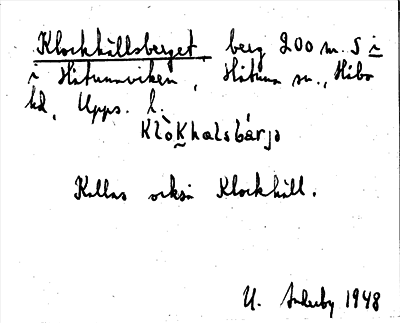 Klockhällsberget, berg 200 m. S i
i Håtunaviken, Håtuna sn., Håbo
hd, Upps. l.
Klòkhalsbárjə
Kallas också Klockhäll.
U. 1948